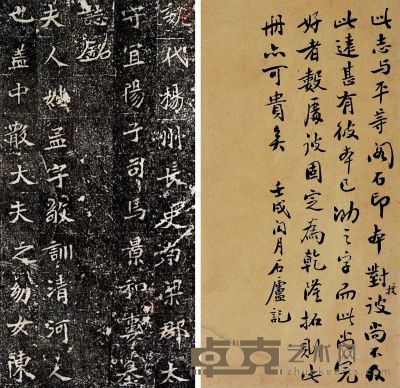 此志与平等閣石印本對校彼尚不及
此遠甚有彼本已泐之字而此尚完
好者數處彼固定為乾隆拓則此
冊亦可貴矣 壬戌閏月石廬記
魏代揚州長史南梁郡太
守宜陽子司馬景和妻墓
誌銘
夫人姓孟字敬訓清河人
也蓋中散大夫之幼女陳
卓克艺术网